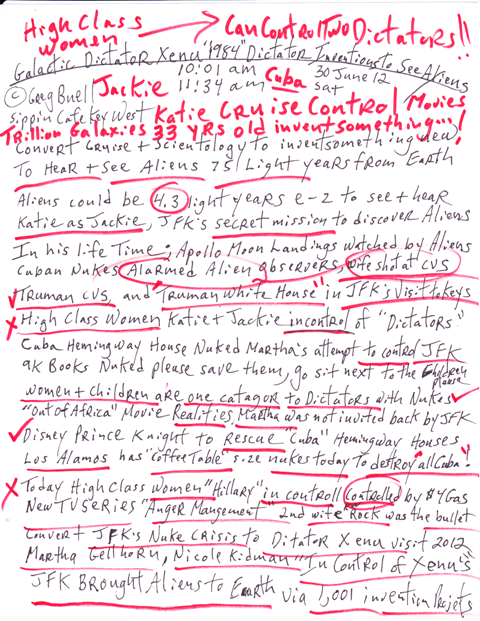 High Class Women → Can Control Two Dictators!!
Galactic Dictator Xenu "1984" Dictator Inventions to See Aliens
© Greg Buell Jackie 10:01 am 11:34 am Cuba 30 June 12 Sat
sippin Cafe Key West Katie Cruise Control Movies
Trillion Galaxies 33 yrs old invent something...!
Convert Cruise + Scientology to invent something used
To Hear + See Aliens 75 Light years from Earth
Aliens could be 4.3 light years e-2 to see + hear
Katie as Jackie, JFK's secret mission to discover Aliens
In his life Time; Apollo Moon Landings watched by Aliens
Cuban Nukes Alarmed Alien observers, wife shot at CVS
Truman CVS, and "Truman White House" in JFK's visit to keys
High Class Women Katie + Jackie in control of "Dictators"
Cuba Hemingway House Nuked Martha's attempt to control JFK
9K Books Nuked please save them, go sit next to the Children please
Women + Children are one catagor to Dictators with Nukes
"Out of Africa" Movie Realities, Martha was not invited back by JFK
Disney Prince Knight to rescue "Cuba" Hemingway Houses
Los Alamos has "Coffee Table" size nukes today to destroy "all Cuba"!
Today High Class Women "Hillary" in control Controlled by $4 Gas
New TV Series "Anger Mangement" 2nd wife "Rock" was the bullet
Convert JFK's Nuke Crisis to Ditator Xenu visit 2012
Martha Gellhorn, Nicole Kidman "In Control of Xenu's"
JFK Brought Aliens to Earth via 1,001 invention Projets